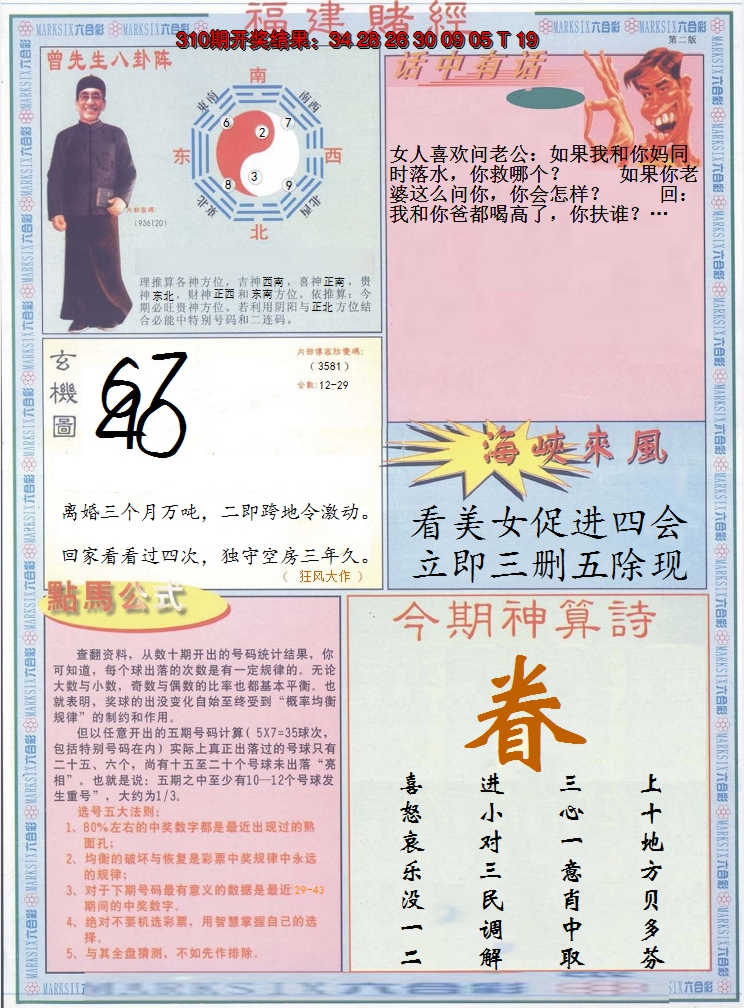 福建賭經
310期开奖结果：34 28 26 30 09 05 T 19
MARKSIX六合彩
第二版
曾先生八卦阵
南
东南
南西
6
2
7
东
西
3
8
9
東北
北西
北
內部密碼:
(936120)
理推算各神方位，吉神西南，喜神正南，贵
神东北，财神正西和东南方位。依推算：今
期必旺贵神方位。若利用阴阳与正北方位结
合必能中特别号码和二连码。
话中有话
女人喜欢问老公：如果我和你妈同
时落水，你救哪个？ 如果你老
婆这么问你，你会怎样？ 回：
我和你爸都喝高了，你扶谁？…
玄機圖
内部傳密防變碼:
(3581)
合數:12-29
离婚三个月万吨，二即跨地令激动。
回家看看过四次，独守空房三年久。
（ 狂风大作 ）
海峽來風
看美女促进四会
立即三删五除现
點馬公式
查翻资料，从数十期开出的号码统计结果，你
可知道，每个球出落的次数是有一定规律的。无论
大数与小数，奇数与偶数的比率也都基本平衡。也
就表明，奖球的出没变化自始至终受到“概率均衡
规律”的制约和作用。
但以任意开出的五期号码计算( 5X7=35球次，
包括特别号码在内) 实际上真正出落过的号球只有
二十五、六个，尚有十五至二十个号球未出落“亮
相”。也就是说：五期之中至少有10—12个号球发
生重号”，大约为1/3。
选号五大法则：
1、80%左右的中奖数字都是最近出现过的熟
面孔；
2、均衡的破坏与恢复是彩票中奖规律中永远
的规律；
3、对于下期号码最有意义的数据是最近29-43
期间的中奖数字。
4、绝对不要机选彩票，用智慧掌握自己的选
择。
5、与其全盘猜测，不如先作排除。
今期神算詩
眷
上十地方贝多芬
三心一意肖中取
进小对三民调解
喜怒哀乐没一二